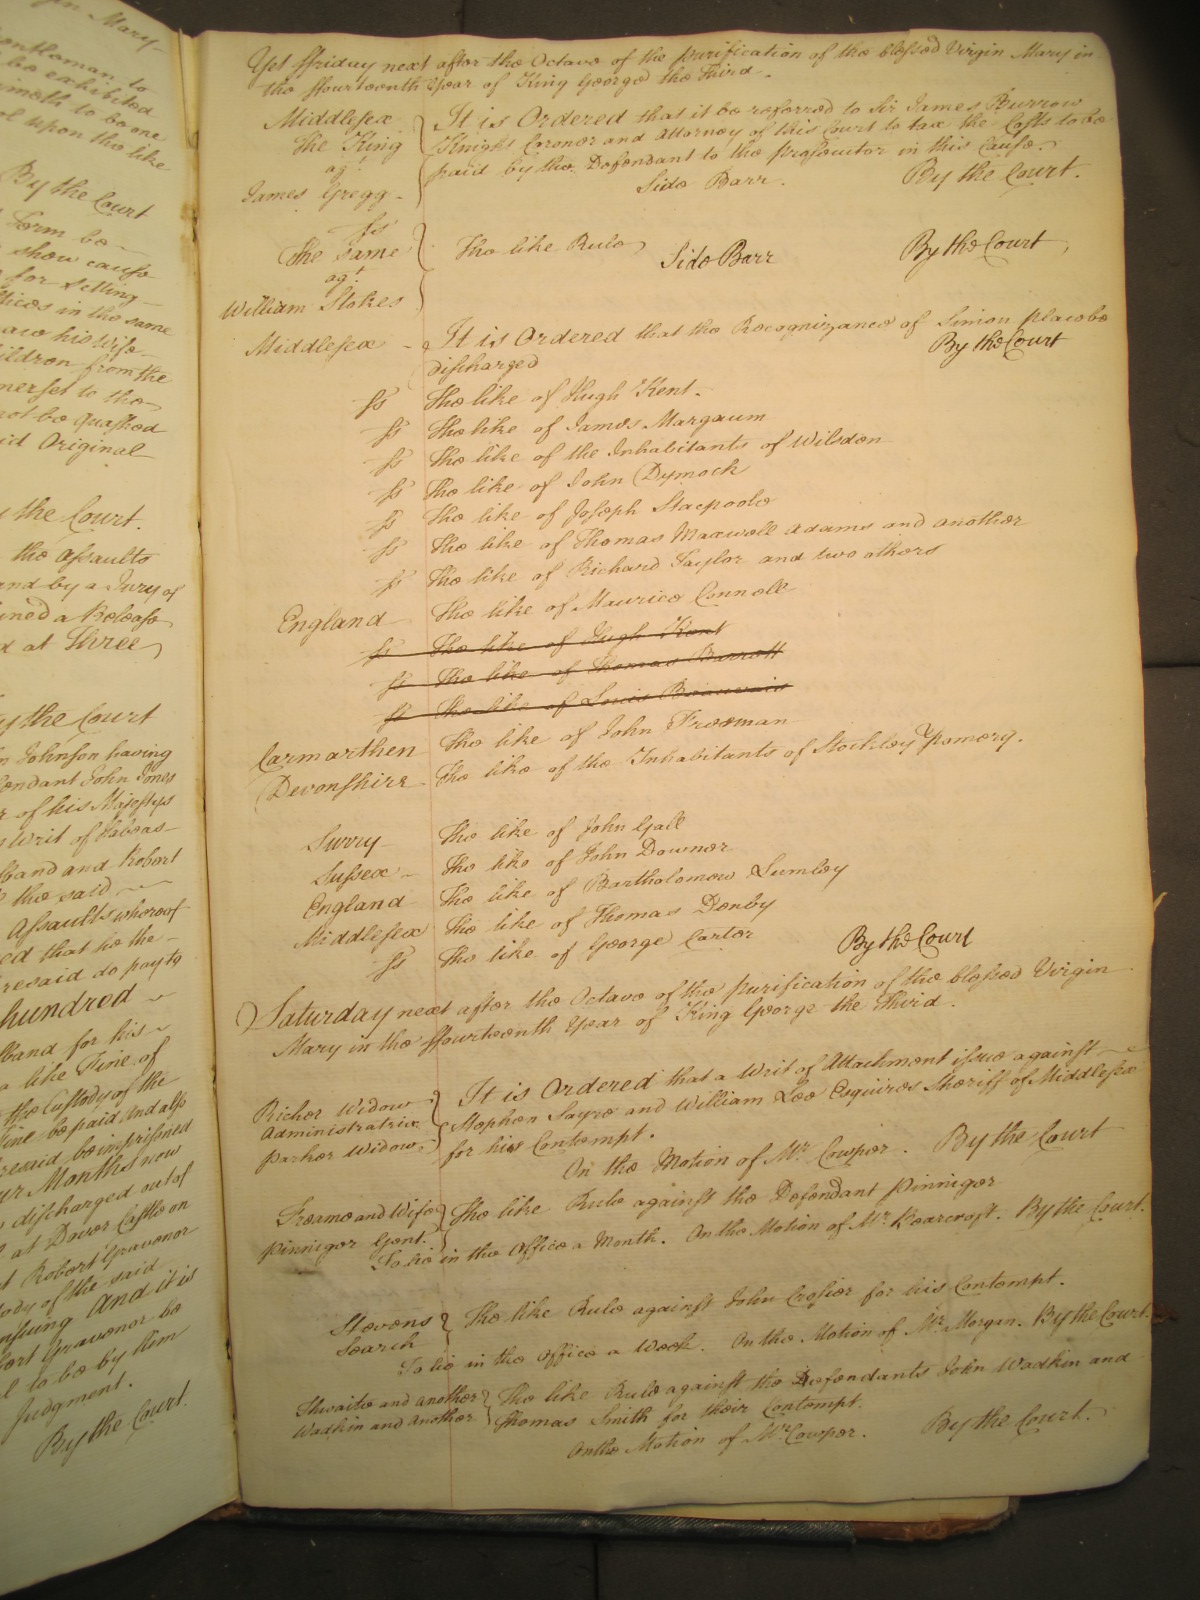 gentleman to
be exhibited
to be one
upon the like
By the Court
Term be
show cause
for setting
in the same
his Wife
Children from the
Somerset to the
not be Quashed
said Original
By the Court.
the Assaults
and by a Jury of
a Release
at Three
By the Court
Johnson having
Defendant John Jones
of his Majestys
Writ of Habeas
Husband and Robert
the said
Assaults whereof
that he the
aforesaid do pay to
hundred
Husband for his
a like Fine of
the Custody of the
Fine be paid and also
aforesaid be imprisoned
Months now
discharged out of
at Dover Castle on
Robert Gravenor
of the said
ensuing And it is
Robert Gravenor be
to be by him
Judgment.
By the Court.
Yet ffriday next after the Octave of the Purification of the blessed Virgin Mary in
the ffourteenth Year of King George the Third.
Middlesex It is Ordered that it be referred to Sir James Burrow
The King Knight Coroner and Attorney of this Court to tax the Costs to be
agt paid by the Defendant to the Prosecutor in this Cause.
James Gregg. Side Barr. By the Court.
ss
The same The like Rule Side Barr By the Court
agt
William Stokes
Middlesex It is Ordered that the Recognizance of Simon Place be
discharged By the Court
ss The like of Hugh Kent.
ss The like of James Margaum
ss The like of the Inhabitants of Wilsden
ss The like of John Dymock
ss The like of Joseph Stacpoole
ss The like of Thomas Maxwell Adams and another
ss The like of Richard Taylor and two others
England The like of Maurice Connell
ss The like of Hugh Kent
ss The like of Thomas Barrott
ss The like of Louis
Carmarthen The like of John Freeman
Devonshire The like of the Inhabitants of Stockley Pomery.
Surry The like of John Gall
Sussex The like of John Downer
England The like of Bartholomew Lumley
Middlesex The like of Thomas Denby
ss The like of George Carter By the Court
Saturday next after the Octave of the Purification of the blessed Virgin
Mary in the ffourteenth Year of King George the Third.
Richer Widow It is Ordered that a Writ of Attachment issue against
Administratrix Stephen Sayre and William Lee Esquires Sheriff of Middlesex
Parker Widow for his Contempt.
On the Motion of Mr. Cowper. By the Court
Freame and Wife The like Rule against the Defendant Pinnigor
Pinnigor Gent.
To lie in the Office a Month. On the Motion of Mr. Bearcroft. By the Court.
Stevens The like Rule against John Crosier for his Contempt.
Search
To lie in the Office a Week. On the Motion of Mr. Morgan. By the Court.
Thwaite and another The like Rule against the Defendants John Wadkin and
Wadkin and Another Thomas Smith for their Contempt.
On the Motion of Mr. Cowper. By the Court.